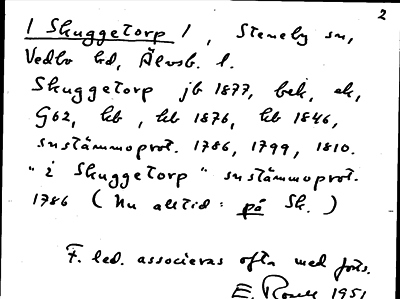 2
/ Skuggetorp / , Steneby sn,
Vedbo hd, Älvsb. l.
Skuggetorp jb 1877, bek, ek,
G62, hb , kb 1876, kb 1846,
sustämmoprot. 1786, 1799, 1810.
"i Skuggetorp" sustämmoprot.
1786 ( Nu alltid : på Sk. )
F. led. associeras ofta med
E. 1951